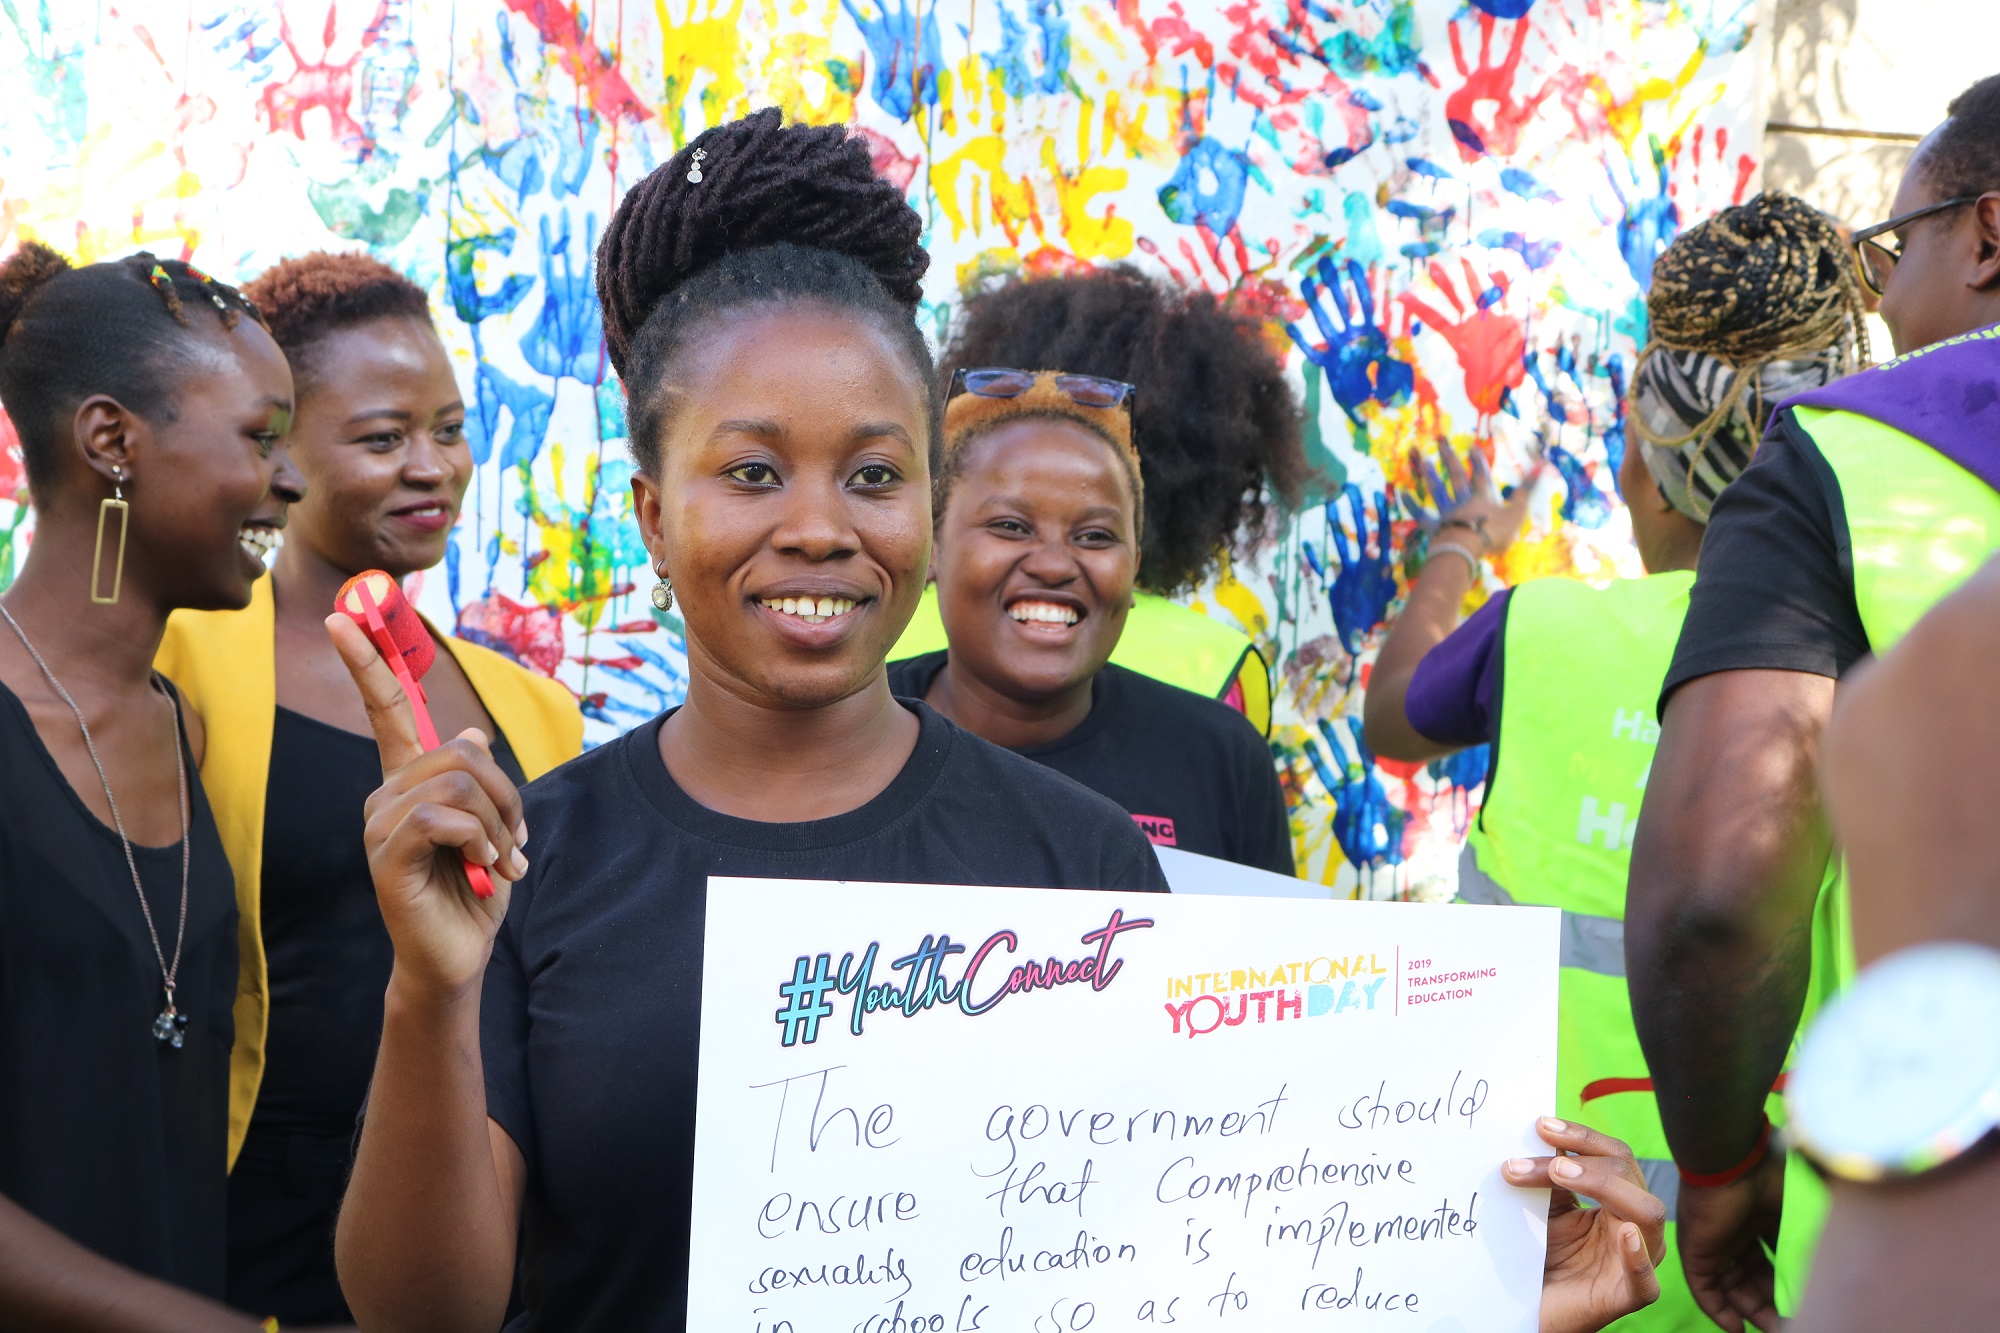 #YouthConnect
INTERNATIONAL
YOUTH DAY
2019
TRANSFORMING
EDUCATION
The government should
ensure that Comprehensive
sexuality education is implemented
in schools so as to reduce